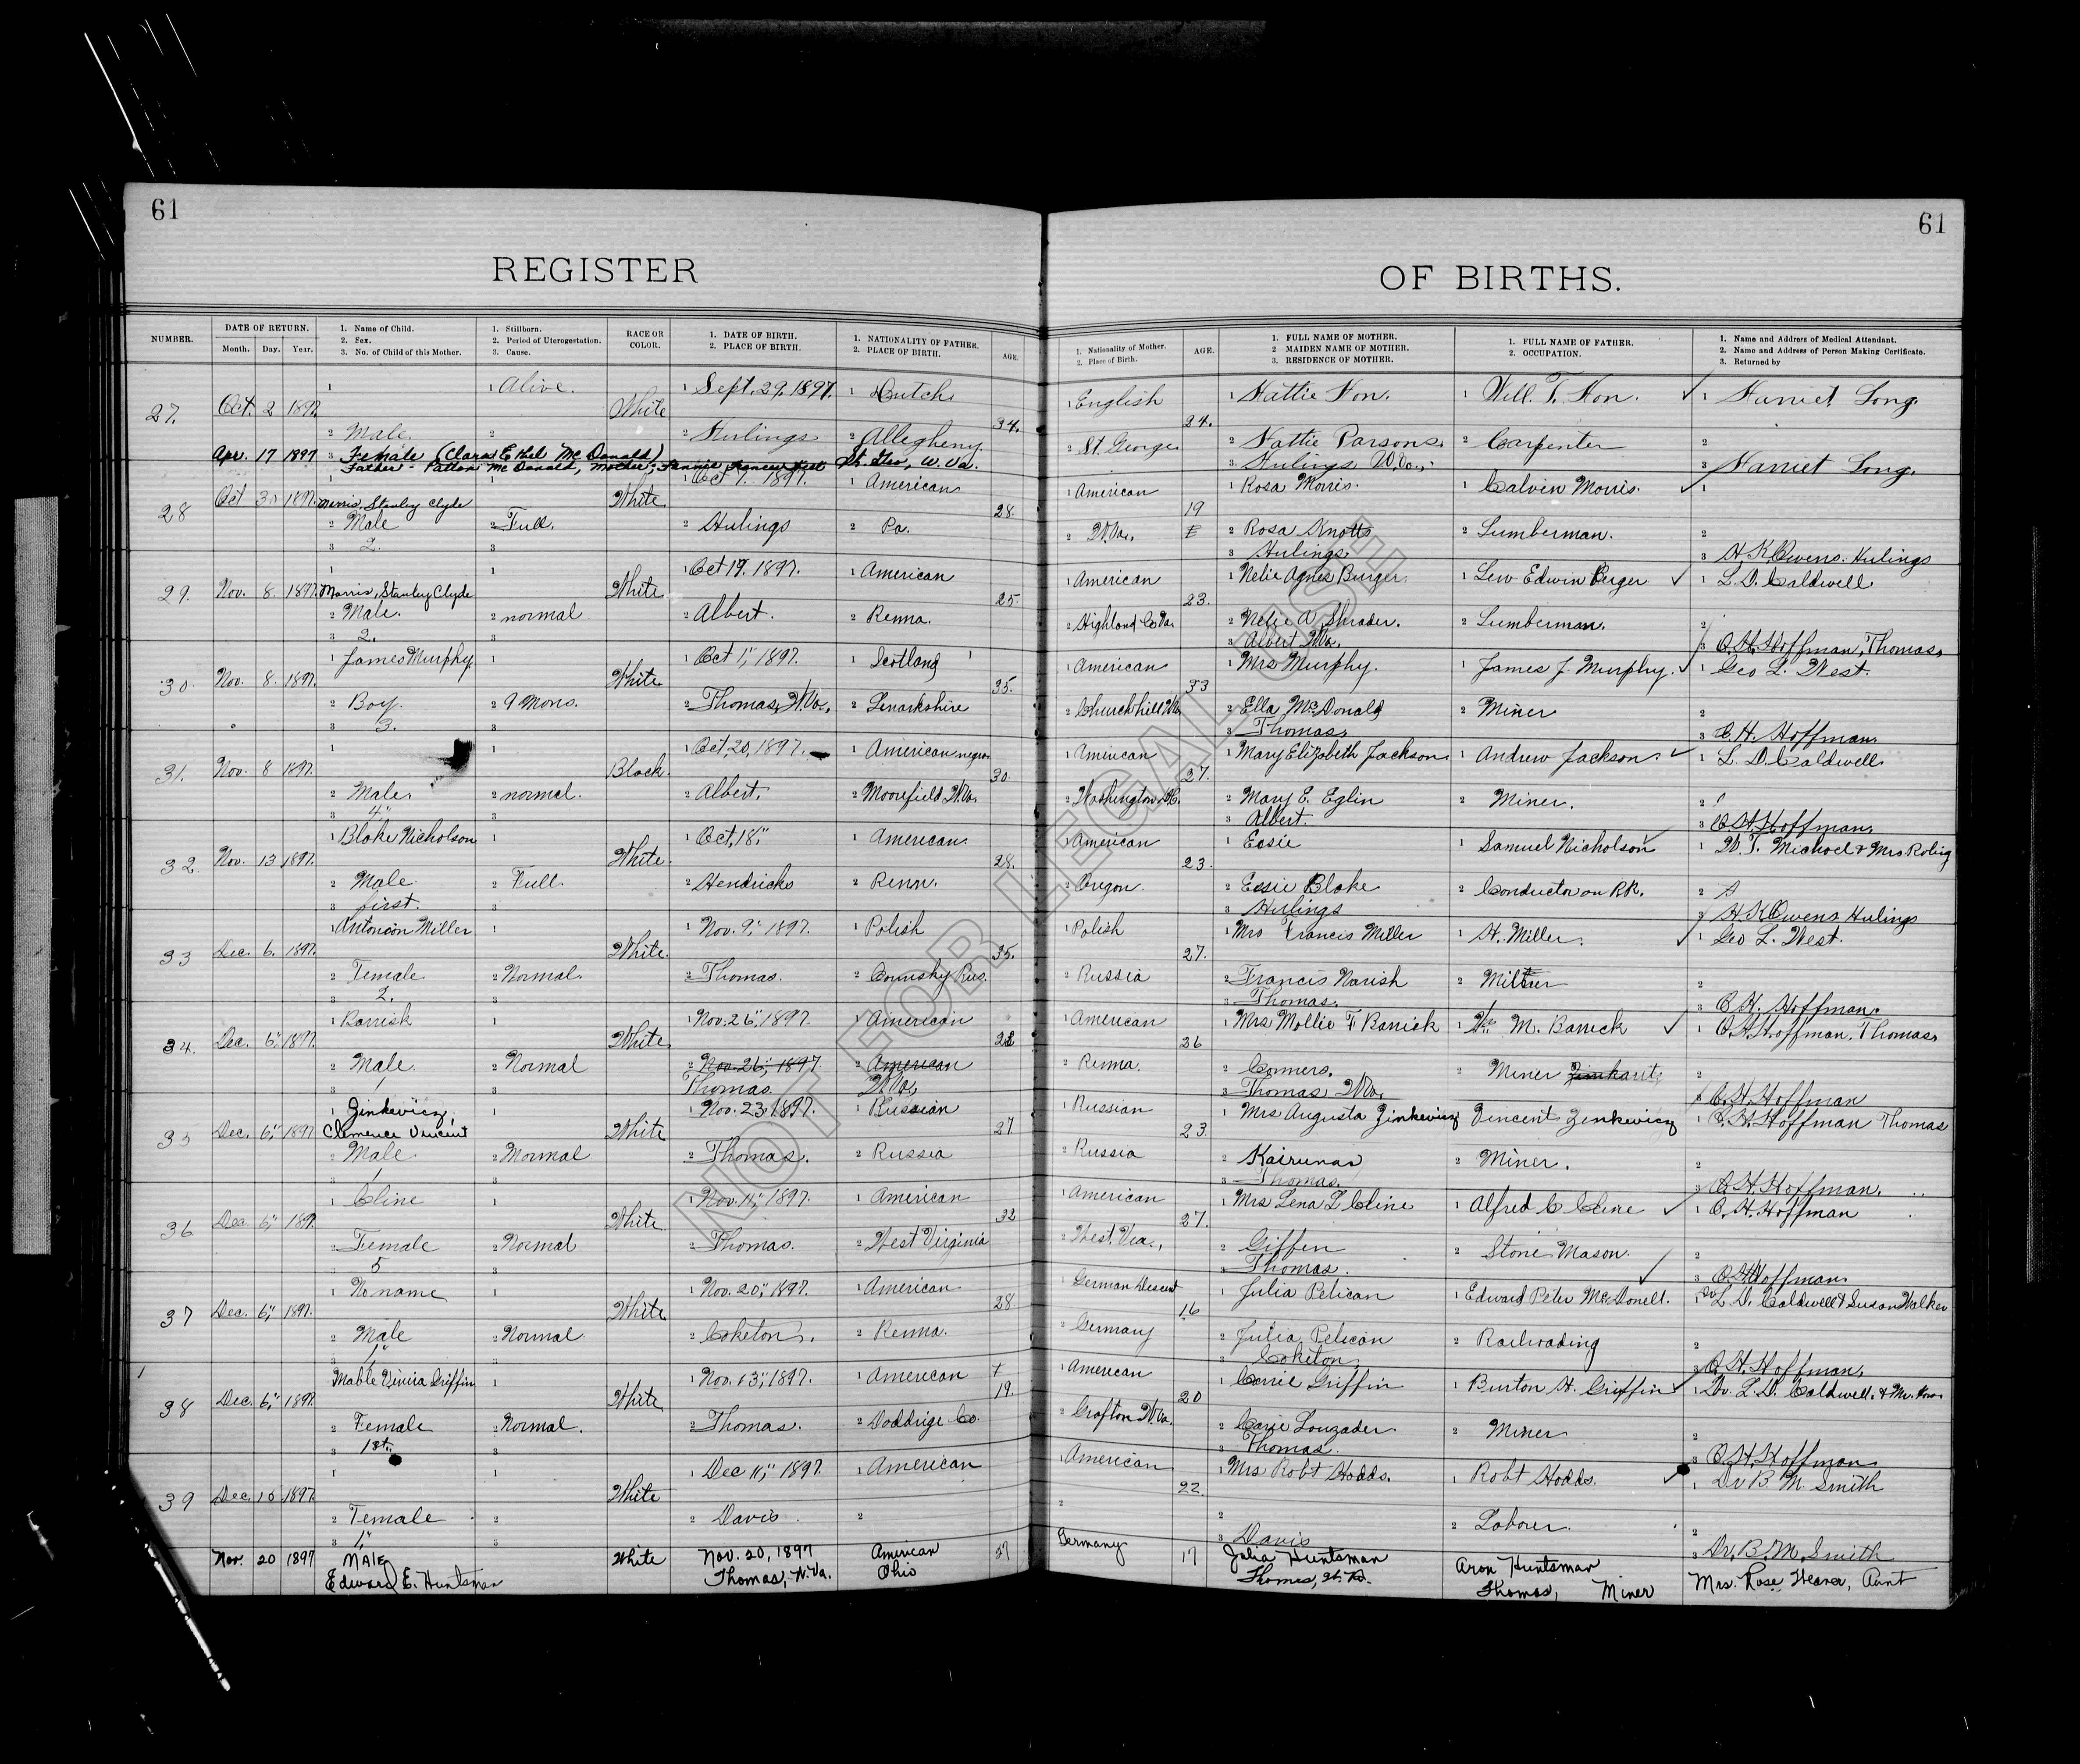 61
61
REGISTER
OF BIRTHS.
NUMBER.
DATE OF RETURN.
Month. Day. Year.
1. Name of Child.
2. Sex.
3. No. of Child of this Mother.
1. Stillborn.
2. Period of Uterogestation.
3. Cause.
RACE OR COLOR.
1. DATE OF BIRTH.
2. PLACE OF BIRTH.
1. NATIONALITY OF FATHER.
2. PLACE OF BIRTH.
AGE.
1. Nationality of Mother.
2. Place of Birth.
AGE.
1. FULL NAME OF MOTHER.
2 MAIDEN NAME OF MOTHER.
3. RESIDENCE OF MOTHER.
1. FULL NAME OF FATHER.
2. OCCUPATION.
1. Name and Address of Medical Attendant.
2. Name and Address of Person Making Certificate.
3. Returned by
27. Oct. 2 1897. 1 1 Alive. White 1 Sept. 29, 1897. 1 Dutch 34. 1 English 34. 1 Hattie Non. 1 Will. T. Non. ✓ 1 Harriet Long.
2 Male. 2 2 Hulings 2 Allegheny 2 St. George 2 Hattie Parsons. 2 Carpenter 2
3 Hulings W.Va., 3 Harriet Long.
Apr. 17 1897 3 Female (Clara Ethel McDonald)
Father - Patton McDonald, Mother: Fannie St. Geo, W. Va.
28 Oct 30 1897. 1 Morris, Stanley Clyde 1 White 1 Oct 7. 1897. 1 American 28. 1 American 19 1 Rosa Morris. 1 Calvin Morris. ✓ 1
2 Male 2 Full. 2 Hulings 2 Pa. 2 W.Va. 2 Rosa Knotts 2 Lumberman. 2
3 2. 3 3 Hulings 3 H. K. Owens. Hulings
29. Nov. 8. 1897. 1 Morris, Stanley Clyde 1 White 1 Oct 19. 1897. 1 American 25. 1 American 23. 1 Nelie Agnes Burger. 1 Lew Edwin Berger ✓ 1 L. D. Caldwell
2 Male. 2 normal 2 Albert. 2 Penna. 2 Highland Co Va. 2 Nelie A. Shrader. 2 Lumberman. 2
3 2. 3 3 Albert W.Va. 3 O. H. Hoffman, Thomas,
30. Nov. 8. 1897. 1 James Murphy 1 White 1 Oct 1", 1897. 1 Scotland 35. 1 American 33 1 Mrs Murphy. 1 James J. Murphy. ✓ 1 Geo L. West.
2 Boy. 2 9 Mons. 2 Thomas, W.Va., 2 Lenarkshire 2 Churchhill 2 Ella McDonald 2 Miner 2
3 3. 3 3 Thomas, 3 O. H. Hoffman.
31. Nov. 8 1897. 1 1 Black. 1 Oct, 20, 1897. 1 American negro 30. 1 American 27. 1 Mary Elizabeth Jackson 1 Andrew Jackson. ✓ 1 L. D. Caldwell
2 Male 2 normal. 2 Albert. 2 Moorefield W.Va. 2 Washington 2 Mary E. Eglin 2 Miner. 2
3 4" 3 3 Albert. 3 O. H. Hoffman.
32. Nov. 13 1897. 1 Blake Nicholson 1 White. 1 Oct, 18" 1 American. 28. 1 American 23. 1 Essie 1 Samuel Nicholson ✓ 1 W. T. Michael & Mrs Roling
2 Male. 2 Full. 2 Hendricks 2 Penn. 2 Oregon. 2 Essie Blake 2 Conductor on RR. 2
3 first. 3 3 Hulings 3 H. K. Owens Hulings
33 Dec. 6. 1897. 1 Miller 1 White. 1 Nov. 9", 1897. 1 Polish 35. 1 Polish 27. 1 Mrs Francis Miller 1 H. Miller. ✓ 1 Geo L. West.
2 Female 2 Normal. 2 Thomas. 2 Rus. 2 Russia 2 Francis Narish 2 2
3 2. 3 3 Thomas. 3 O. H. Hoffman.
34. Dec. 6", 1897. 1 Barrick 1 White. 1 Nov. 26", 1897. 1 American 1 American 26 1 Mrs Mollie F Barrick 1 Wm. M. Barrick ✓ 1 O. H. Hoffman. Thomas,
2 Male. 2 Normal 2 Nov. 26", 1897 2 American 2 Penna. 2 Conners. 2 Miner 2
3 1 3 Thomas W.Va, 3 Thomas W.Va. 3 O. H. Hoffman
35 Dec. 6", 1897 1 Zinkevicz, 1 White 1 Nov. 23, 1897. 1 Russian 27 1 Russian 23. 1 Mrs Augusta Zinkevicz 1 Vincent Zenkevicz 1 O. H. Hoffman Thomas
Clemence Vincent
2 Male. 2 Normal 2 Thomas. 2 Russia 2 Russia 2 Kairunas 2 Miner. 2
3 1 3 3 Thomas. 3 O. H. Hoffman.
36 Dec. 6", 1897. 1 Cline 1 White. 1 Nov. 11", 1897. 1 American 32 1 American 27. 1 Mrs Lena L Cline 1 Alfred C Cline ✓ 1 O. H. Hoffman
2 Female 2 Normal 2 Thomas. 2 West Virginia 2 West Va., 2 Giffen 2 Stone Mason. 2
3 5 3 3 Thomas. 3 O. H. Hoffman.
37 Dec. 6", 1897. 1 No name 1 White 1 Nov. 20", 1897. 1 American 28 1 German Descent 16 1 Julia Pelican 1 Edward Peter McDonell. ✓ 1 Dr L. D. Caldwell & Susan Walker
2 Male 2 Normal 2 Coketon. 2 Penna. 2 Germany 2 Julia Pelican 2 Railroading 2
3 1" 3 3 Coketon. 3 O. H. Hoffman,
38 Dec. 6", 1897. 1 Mable Griffin 1 White 1 Nov. 13", 1897. 1 American 19. 1 American 20 1 Carrie Griffin 1 Burton H. Griffin ✓ 1 Dr. L. D. Caldwell. &
2 Female 2 Normal. 2 Thomas. 2 Doddrige Co. 2 Grafton W.Va. 2 Carie Louzader 2 Miner 2
3 1st. 3 3 Thomas. 3 O. H. Hoffman
39 Dec. 18 1897. 1 1 White 1 Dec 11", 1897. 1 American 1 American 22. 1 Mrs Robt Hodds. 1 Robt Hodds. ✓ 1 Dr B. M. Smith
2 Female 2 2 Davis 2 2 2 2 Laborer. 2
3 1", 3 3 Davis 3 Dr. B. M. Smith
Nov. 20 1897 MALE White Nov. 20, 1897 American 37 Germany 17 Julia Huntsman Aron Huntsman Mrs. Rose Weaver, Aunt
Edward E. Huntsman Thomas, W. Va. Ohio Thomas, W. Va. Thomas, Miner
NOT FOR LEGAL USE